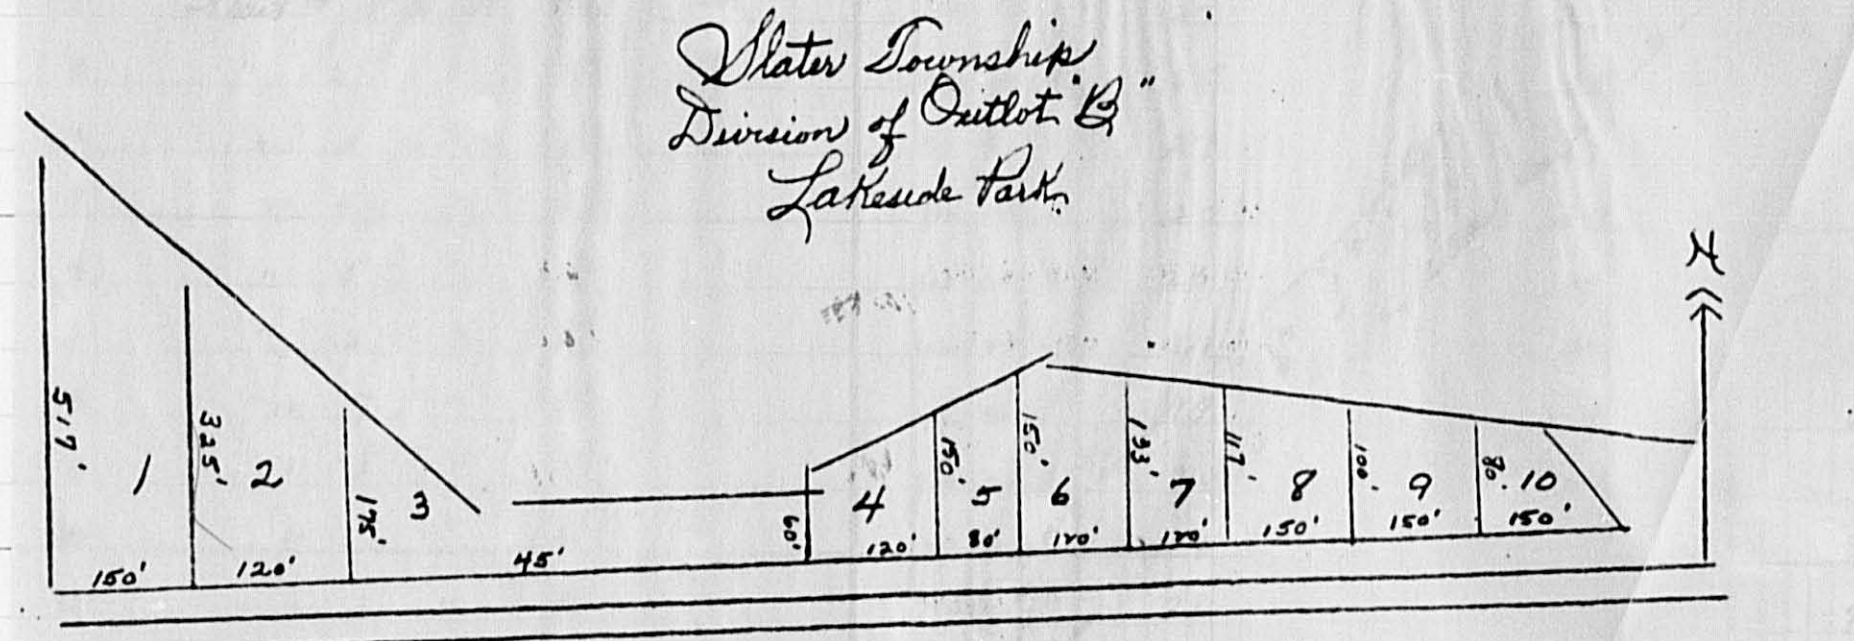 Slater Township
Division of Outlot "B"
Lakeside Park
N
517'
1
150'
325'
2
120'
175'
3
45'
60'
4
120'
150'
5
80'
150'
6
120'
133'
7
120'
117'
8
150'
100'
9
150'
80'
10
150'